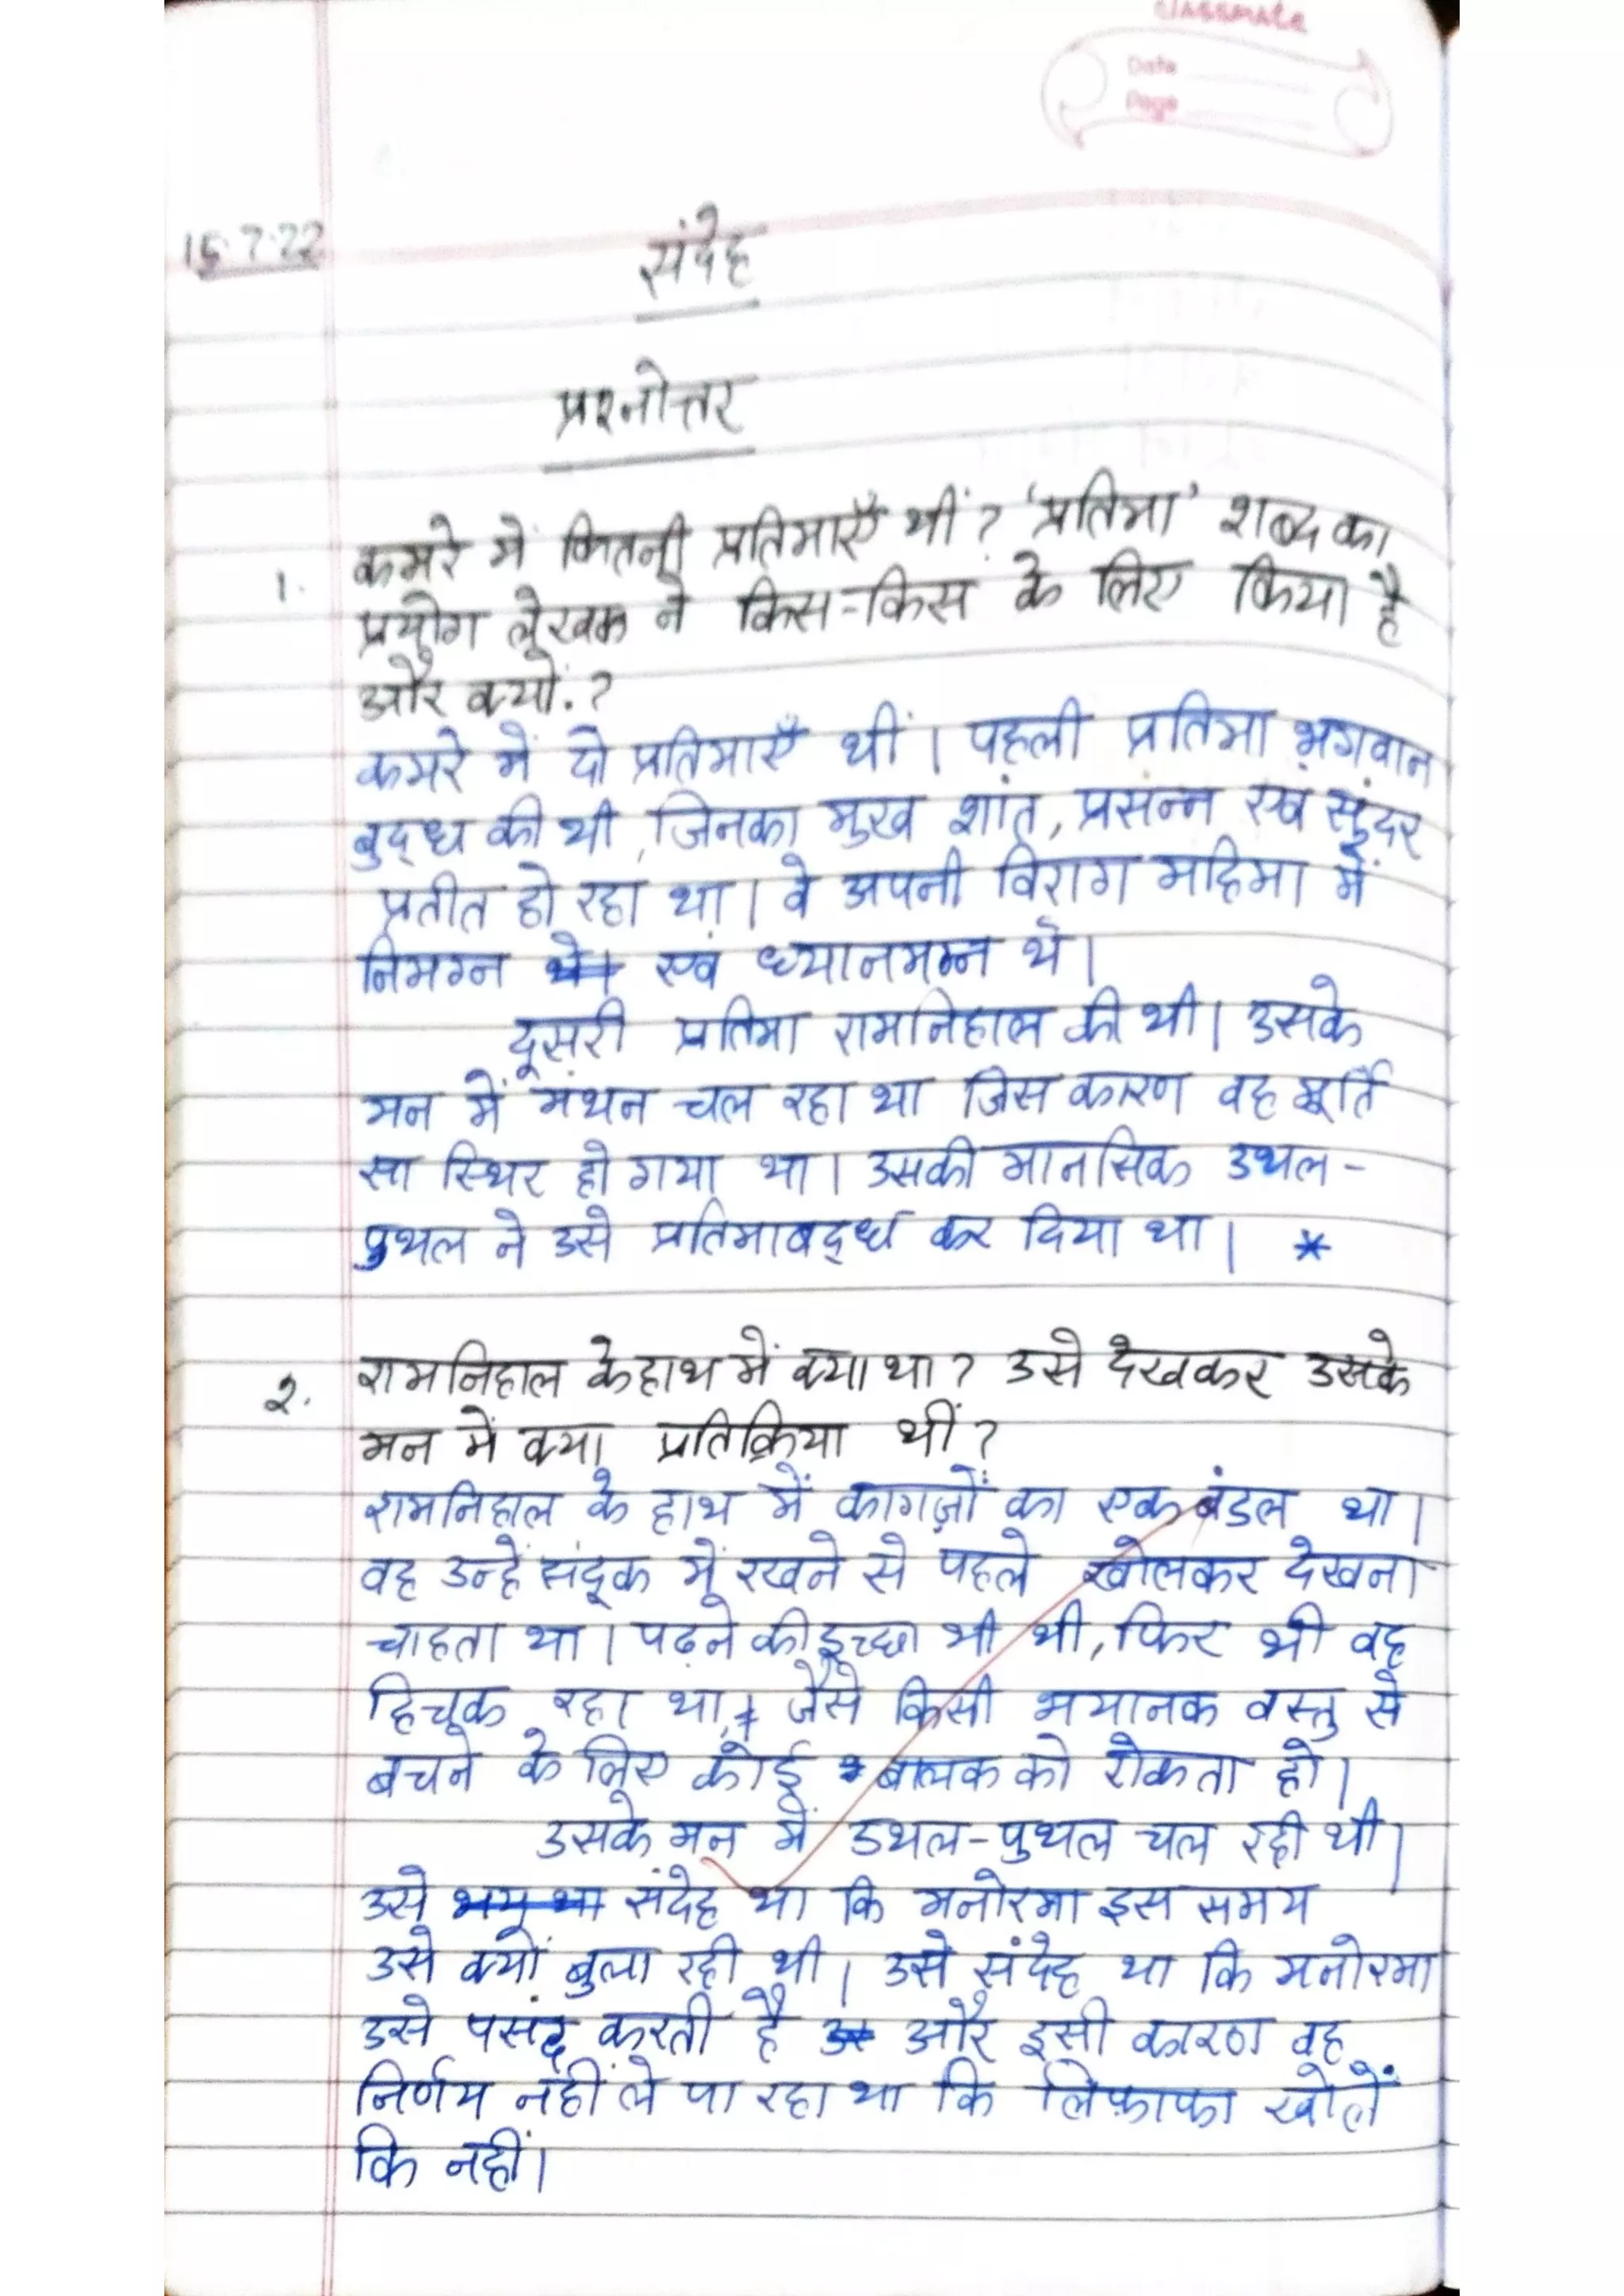 classmate
Date
Page
15.7.22
संदेह
प्रश्नोत्तर
1. कमरे में कितनी प्रतिमाएँ थीं? 'प्रतिमा' शब्द का
प्रयोग लेखक ने किस-किस के लिए किया है
और क्यों.?
कमरे में दो प्रतिमाएँ थीं। पहली प्रतिमा भगवान
बुद्ध की थी, जिनका मुख शांत, प्रसन्न एवं सुंदर
प्रतीत हो रहा था। वे अपनी विराग महिमा में
निमग्न थे। एवं ध्यानमग्न थे।
दूसरी प्रतिमा रामनिहाल की थी। उसके
मन में मंथन चल रहा था जिस कारण वह मूर्ति
सा स्थिर हो गया था। उसकी मानसिक उथल-
पुथल ने उसे प्रतिमाबद्ध कर दिया था। *
2. रामनिहाल के हाथ में क्या था? उसे देखकर उसके
मन में क्या प्रतिक्रिया थीं?
रामनिहाल के हाथ में कागज़ों का एक बंडल था।
वह उन्हें संदूक में रखने से पहले खोलकर देखना
चाहता था। पढ़ने की इच्छा भी थी, फिर भी वह
हिचक रहा था, जैसे किसी भयानक वस्तु से
बचने के लिए कोई बालक को रोकता हो।
उसके मन में उथल-पुथल चल रही थी।
उसे संदेह था कि मनोरमा इस समय
उसे क्यों बुला रही थी। उसे संदेह था कि मनोरमा
उसे पसंद करती है और इसी कारण वह
निर्णय नहीं ले पा रहा था कि लिफ़ाफा खोलें
कि नहीं।